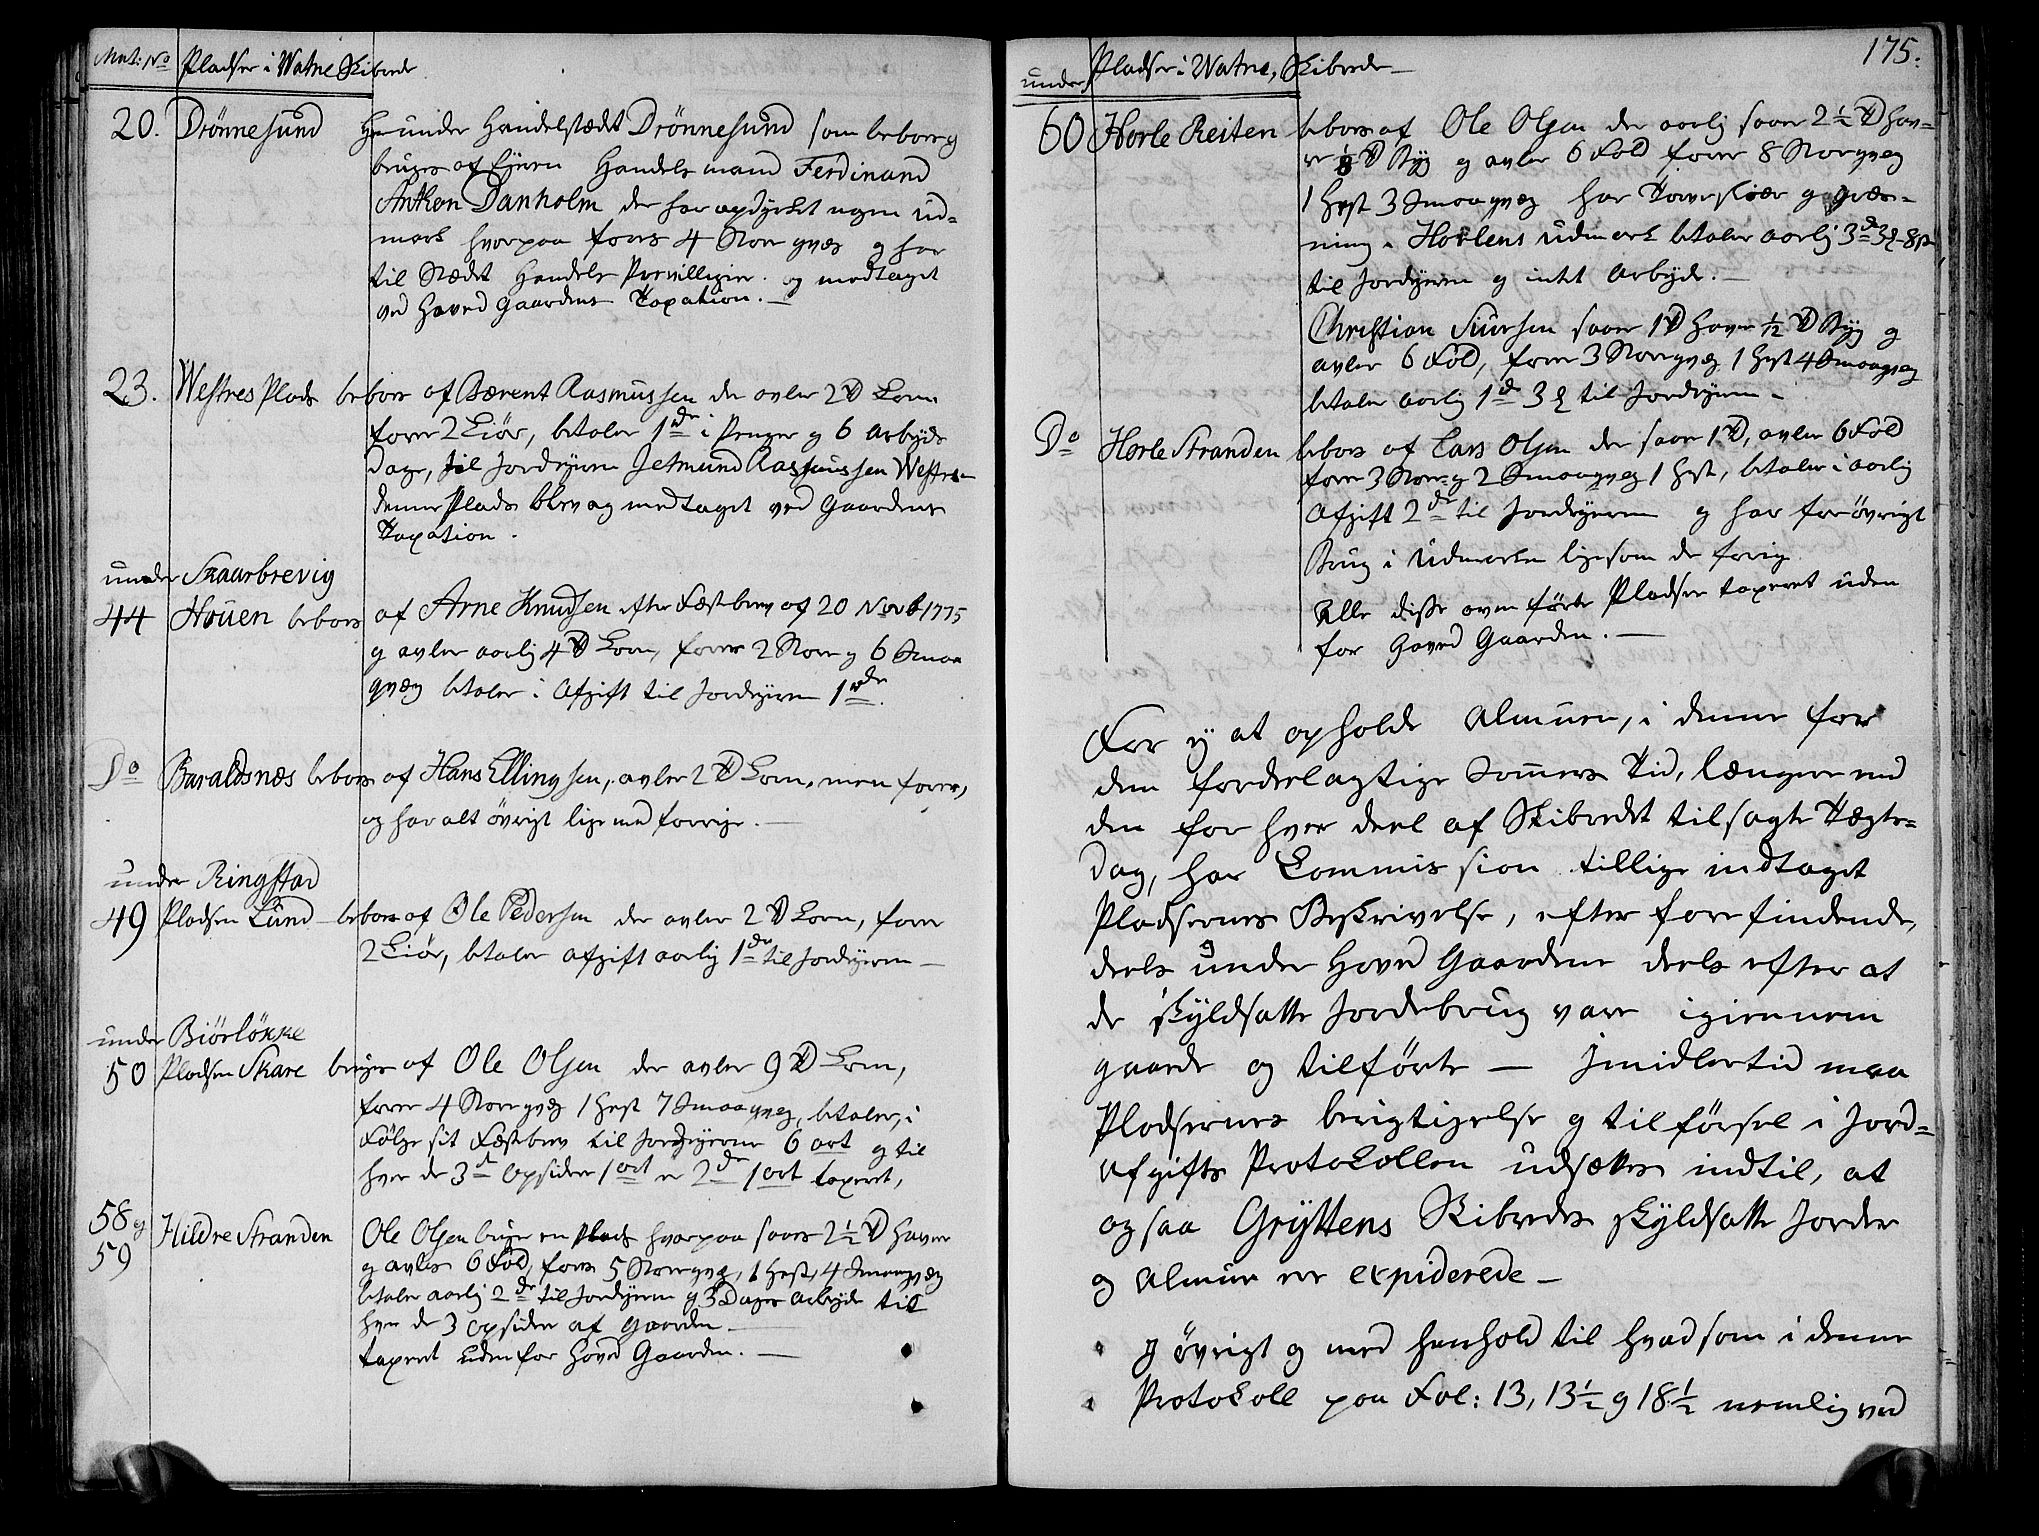 Mat: No Pladser i Watne Skibrede
20. Drönnesund Her under Handelstædet Drönnesund som beboes og
bruges af Ejeren Handels mand Ferdinand
Anthon Danholm der har opdyrket nogen ud-
mark hvorpaa föres 4 Stor qvæg og har
til Stædet Handels Previlligier. og medtaget
ved Hoved Gaardens Taxation. —
23. Westres Plads beboes af Bærent Rasmussen der avler 2 Td Korn
föder 2 Kiör, betaler 1 rdr i Penger og 6 Arbeyds
Dage, til Jordejeren Jetmund Rasmussen Westre-
denne Plads blev og medtaget ved Gaardens
Taxation.
under Skaarbrevig
44 Houen beboes af Arne Knudsen efter Fæstebrev af 20 Novb 1775
og avler aarlig 4 Td Korn, föder 2 Stor og 6 Smaa
qvæg betaler i Afgift til Jordejeren 1 rdr.
Do Baraldsnæs beboes af Hans Ellingsen, avler 2 Td Korn, men föder,
og har alt övrigt lige med forrige. —
under Ringstad
49 Pladsen Lund beboes af Ole Pedersen der avler 2 Td Korn, föder
2 Kiör, betaler afgift aarlig 1 dr til Jordejeren —
under Biörlökke
50 Pladsen Skare bruges af Ole Olsen der avler 9 Td Korn,
föder 4 Storqvæg 1 Hest 7 Smaaqvæg, betaler, i
Fölge sit Fæstebrev til Jordejerne 6 ort og til
hver de 3de Opsidere 1 ort er 2 dr 1 ort taxeret,
58 og
59 Hildre Stranden Ole Olsen bruger en Plads hvorpaa saaes 2½ Td Haver
og avles 6 Fold, föder 5 Storqvæg, 1 Hest, 4 Smaaqvæg
betaler aarlig 2 dr til Jordejeren og 3 Dages Arbeyde til
hver de 3 opsidere af Gaarden —
taxeret uden for Hoved Gaarden. —
175.
under Pladser i Watne, Skibrede —
60 Horle Reiten beboes af Ole Olsen der aarlig saaer 2½ Td Hav-
re 1/8 Td Byg og avler 6 Fold föder 8 Storqvæg
1 Hest 3 Smaaqvæg har Torveskiær og græs-
ning i Horlens Udmark betaler aarlig 3 dr 3 8
til Jordejeren og intet Arbeyde. —
Christian Siursen saaer 1 Td Haver 1/12 Td Byg og
avler 6 Fold, föder 3 Storqvæg 1 Hest 4 Smaaqvæg
betaler aarlig 1 dr 3 til Jordejeren —
Do Horle Stranden beboes af Lars Olsen der saaer 1 Td, avler 6 Fold
föder 3 Stor og 2 Smaaqvæg 1 Hest, betaler i aarlig
Afgift 2 dr til Jordejeren og har for övrigt
Brug i Udmarken ligesom de forrige.
Alle disse oven förte Pladser taxeret uden
for Hoved Gaarden. —
For ej at opholde Almuen, i denne for
dem fordeelagtige Sommers Tid, længere end
den for hver deel af Skibredet tilsagte Tægte-
dag, har Commissionen tillige indtaget
Pladsernes Beskrivelse, efter forefindende,
deels under Hoved Gaardene deels efter at
de skyldsatte Jordebrug vare igiennem
gaaede og tilförte — Imidlertid maa
Pladsernes berigtigelse og tilförsel i Jord-
afgifts Protokollen udsættes indtil, at
ogsaa Gryttens Skibredes skyldsatte Jorder
og Almue ere expiderede —
I övrigt og med henhold til hvad som i denne
Protokoll paa Fol: 13, 13½ og 18½ nemlig ved